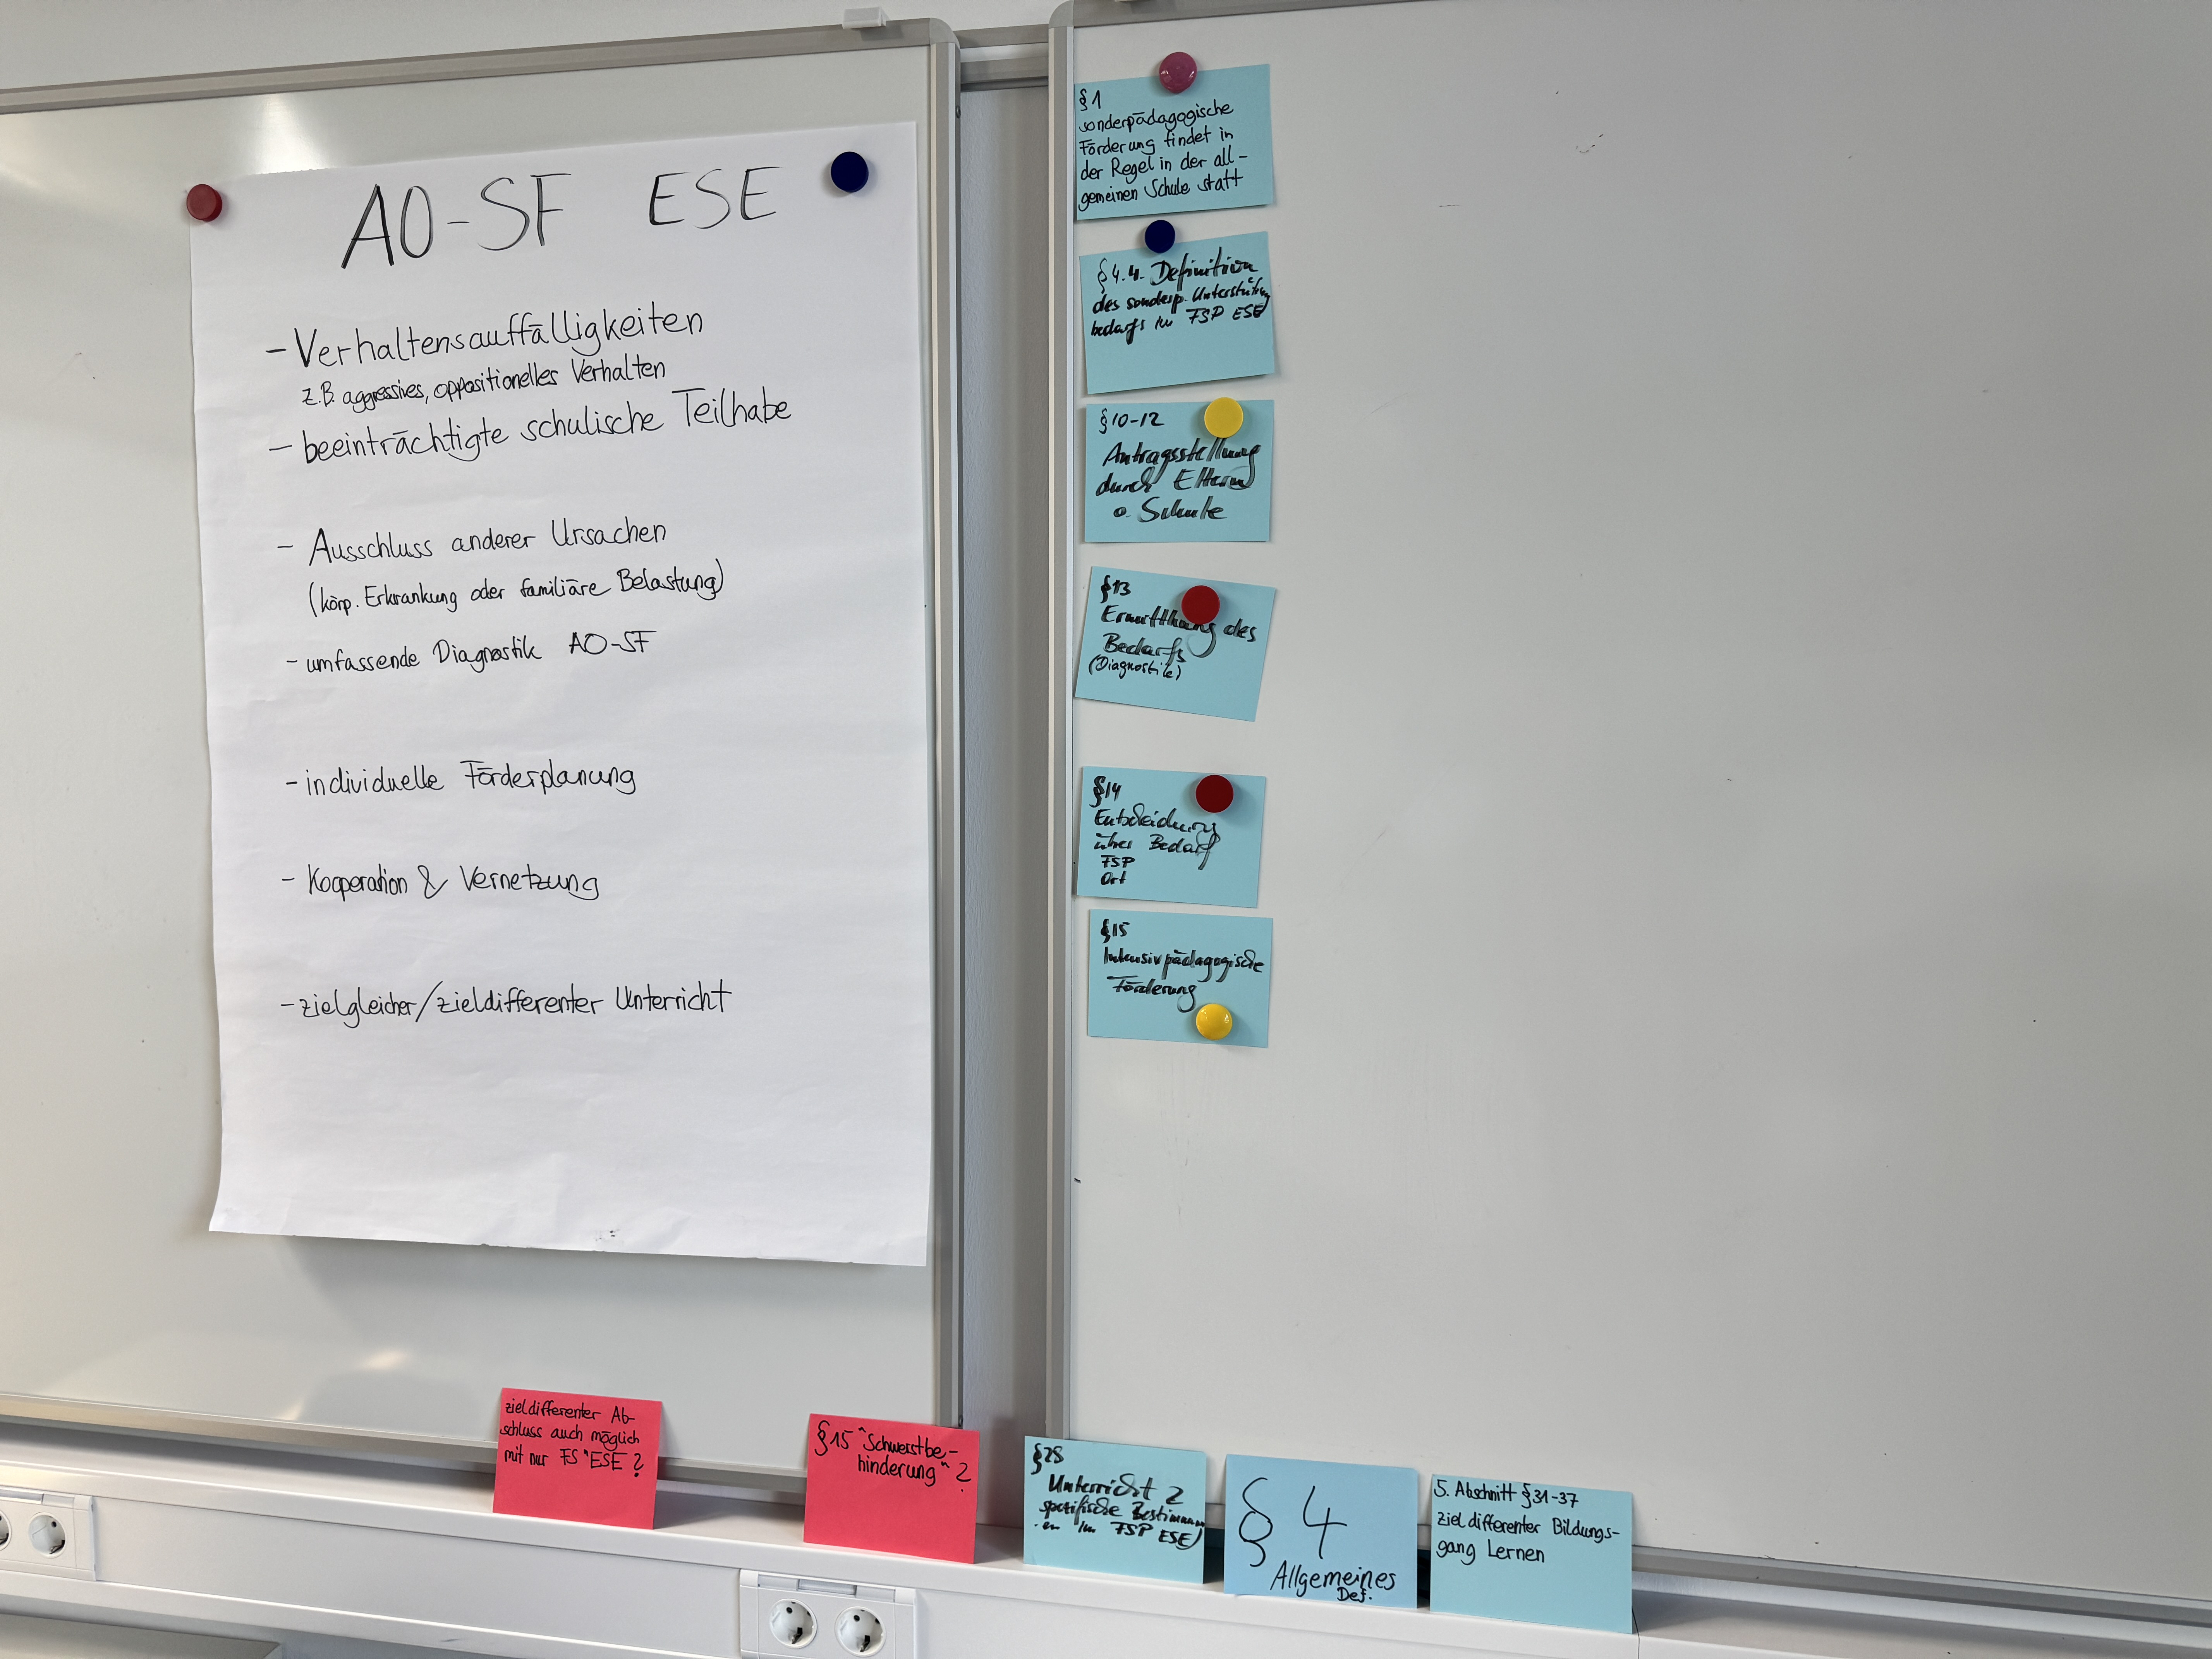 AO-SF ESE
- Verhaltensauffälligkeiten
z.B. aggressives, oppositionelles Verhalten
- beeinträchtigte schulische Teilhabe
- Ausschluss anderer Ursachen
(körp. Erkrankung oder familiäre Belastung)
- umfassende Diagnostik AO-SF
- individuelle Förderplanung
- Kooperation & Vernetzung
- zielgleicher/zieldifferenter Unterricht
§1
sonderpädagogische
Förderung findet in
der Regel in der all-
gemeinen Schule statt
§4.4. Definition
des sonderp. Unterstützung
bedarfs im FSP ESE
§10-12
Antragsstellung
durch Eltern
o. Schule
§13
Ermittlung des
Bedarfs
(Diagnostik)
§14
Entscheidung
über Bedarf
FSP
Ort
§15
Intensivpädagogische
Förderung
zieldifferenter Ab-
schluss auch möglich
mit nur FS "ESE?
§15 "Schwerstbe-
hinderung"?
§28
Unterricht
spezifische
im FSP ESE)
§4
Allgemeines
Def.
5. Abschnitt §31-37
zieldifferenter Bildungs-
gang Lernen